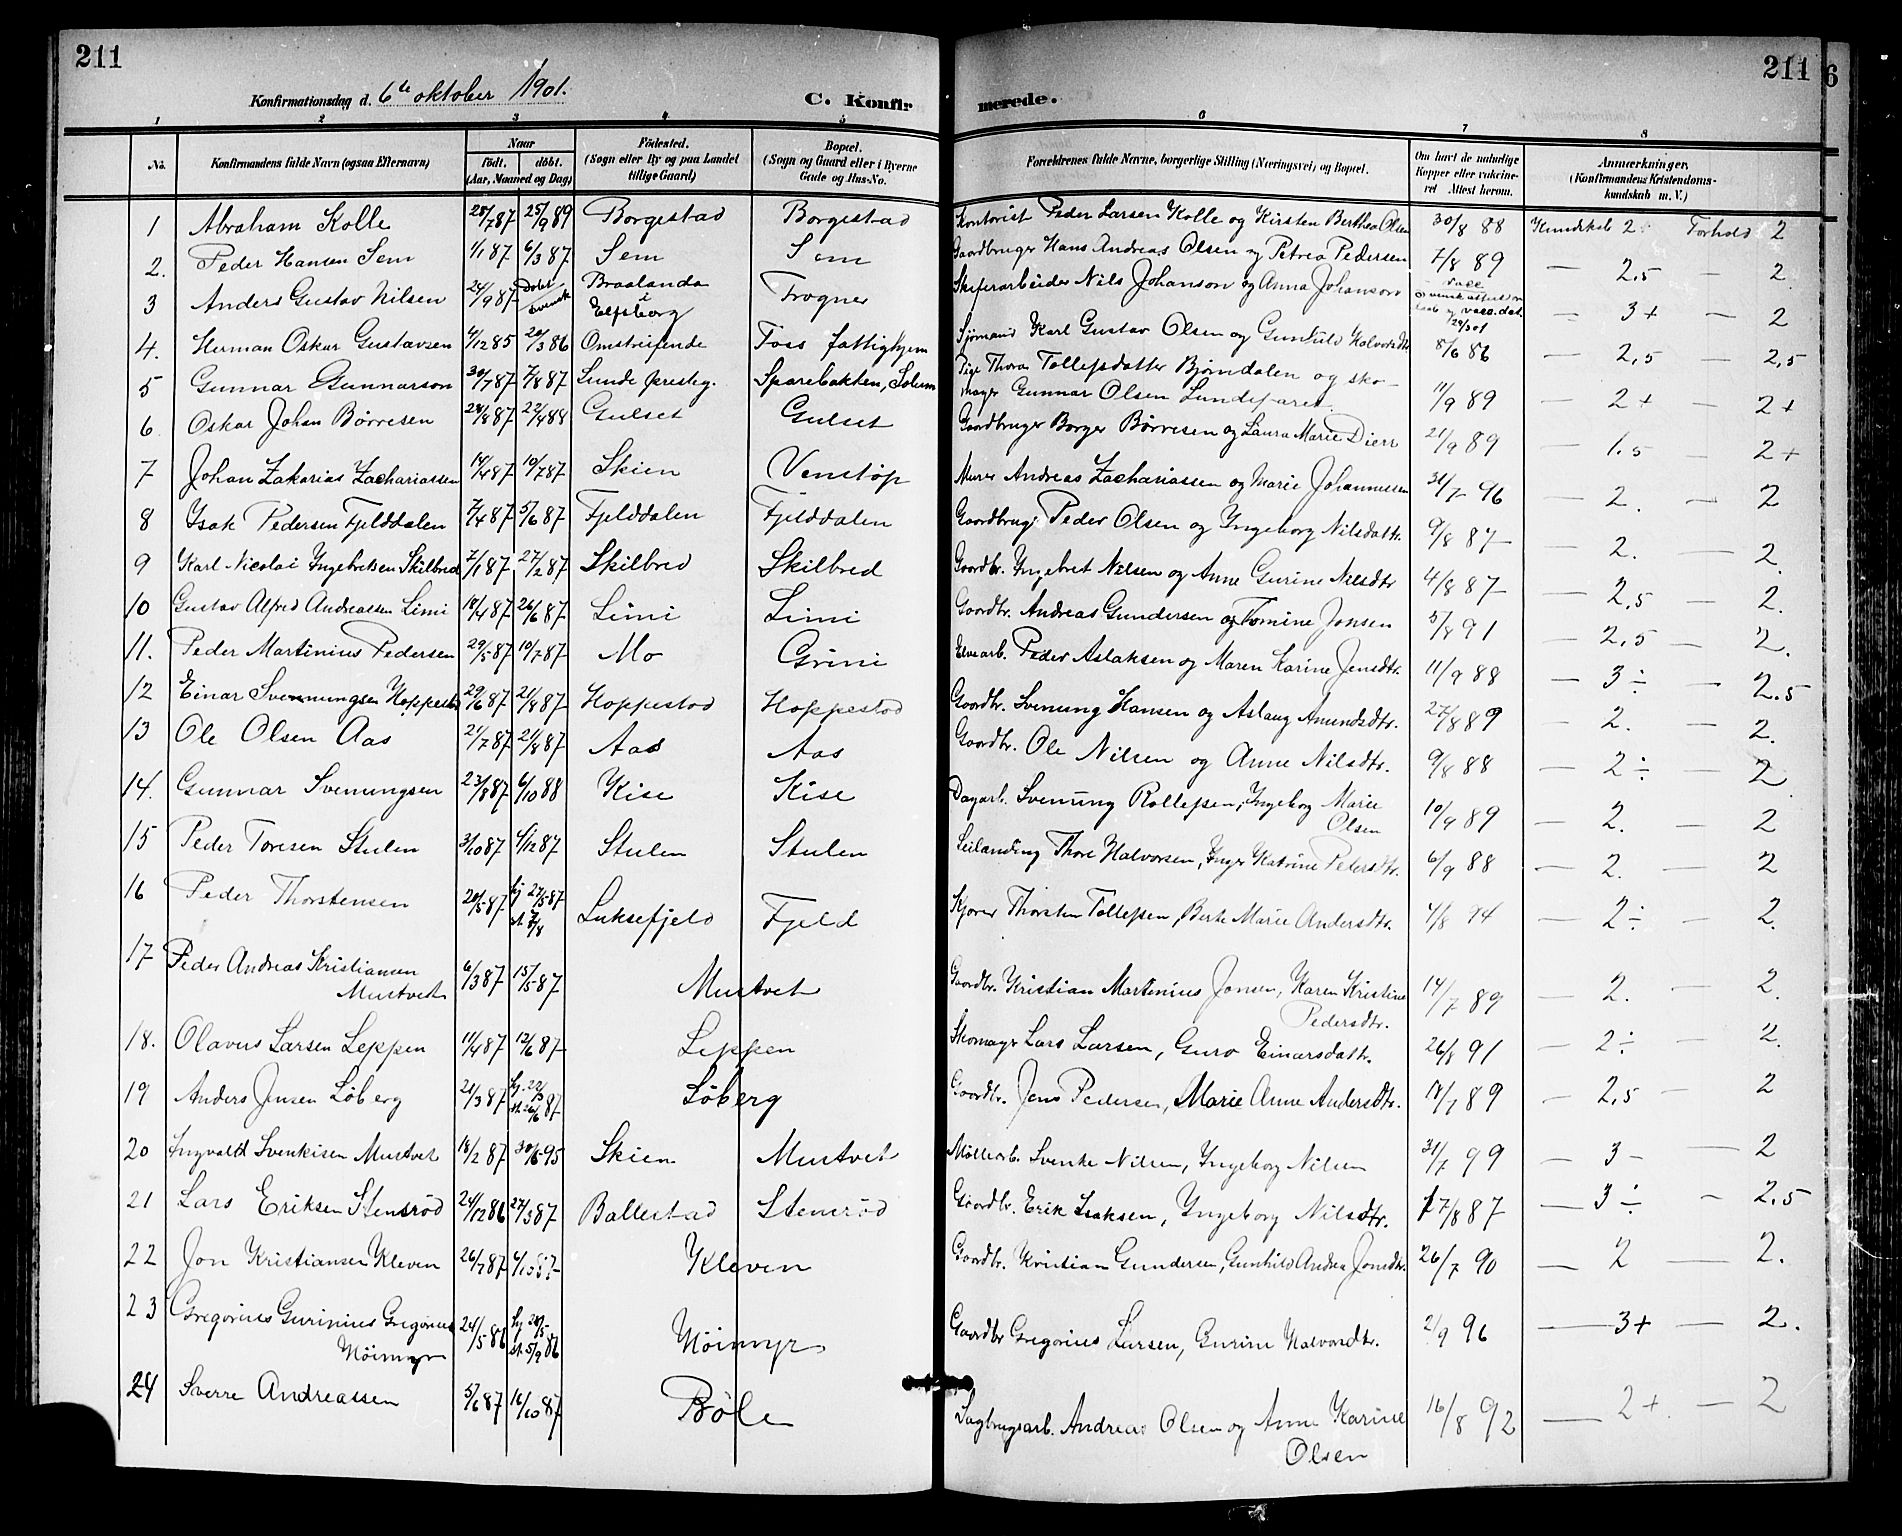 211
Konfirmationsdag d. 6te oktober 1901.
C. Konfir
merede.
211
6
1 2 3 4 5 6 7 8
No.
Konfirmandens fulde Navn (ogsaa Efternavn)
Naar
født. døbt.
(Aar, Maaned og Dag)
Fødested.
(Sogn eller By og paa Landet
tillige Gaard)
Bopæl.
(Sogn og Gaard eller i Byerne
Gade og Hus-No.
Forældrenes fulde Navne, borgerlige Stilling (Næringsvei) og Bopæl.
Om havt de naturlige
Kopper eller vakcine-
ret Attest herom.
Anmærkninger.
(Konfirmandens Kristendoms-
kundskab m. V.)
1 Abraham Kolle 28/7 87 25/9 89 Borgestad Borgestad Kontorist Peder Larsen Kolle og Kirsten Berthea Olsen 30/8 88 Kundskab 2 Forhold 2
2. Peder Hansen Sem 1/1 87 6/3 87 Sem Sem Gaardbruger Hans Andreas Olsen og Petrea Pedersen 89 — 2,5 — 2
3 Anders Gustav Nilsen 24/9 87 Døbt Svensk Braalanda i Elfsborg Frogner Skiferarbeider Nils Johanson og Anna Johanson — 3+ — 2
4. Herman Oskar Gustavsen 4/12 85 20/3 86 Omstreifende Foss fattighjem Sjømand Karl Gustav Olsen og Gunhild Halvorsdtr 8/6 86 — 2,5 — 2,5
5 Gunnar Gunnarson 30/7 87 7/8 87 Lunde prestig. Sparebakken, Solum Pige Thora Tollefsdatter Bjørndalen og sko-
mager Gunnar Olsen Lundefaret 11/9 89 — 2+ — 2+
6 Oskar Johan Børresen 28/8 87 22/4 88 Gulset Gulset Gaardbruger Børger Børresen og Laura Marie Dierr 21/9 89 — 1.5 — 2+
7 Johan Zakarias Zachariassen 14/4 87 10/7 87 Skien Venstøp Murer Andreas Zachariassen og Marie Johannessen 31/7 96 — 2. — 2
8 Isak Pedersen Fjelddalen 7/4 87 5/6 87 Fjelddalen Fjelddalen Gaardbrug. Peder Olsen og Ingeborg Nilsdatter 9/8 87 — 2. — 2.
9 Karl Nicolai Ingebretsen Skilbred 7/1 87 27/2 87 Skilbred Skilbred Gaardbr. Ingebret Nelsen og Anne Gurine Nelsdtr 4/8 87 — 2,5 — 2.
10 Gustav Alfred Andreassen Limi 18/4 87 26/6 87 Limi Limi Gaardbr. Andreas Gundersen og Tomine Jonsen 5/8 91 — 2,5 — 2.
11. Peder Martinius Pedersen 29/5 87 10/7 87 Mo Grini Elvearb. Peder Aslaksen og Maren Karine Jensdtr. 11/9 88 — 3÷ — 2.5
12 Einar Svennungsen Hoppestad 29/6 87 21/8 87 Hoppestad Hoppestad Gaardbr. Svenung Hansen og Aslaug Amundsdtr. 27/8 89 — 2. — 2.
13 Ole Olsen Aas 21/7 87 21/8 87 Aas Aas Gaardbr. Ole Nilsen og Anne Nilsdtr. 9/8 88 — 2÷ — 2
14. Gunnar Svenungsen 23/8 87 6/10 88 Kise Kise Dagarb. Svenung Rollefsen, Ingeborg Marie
Olsen 10/9 89 — 2. — 2
15 Peder Toresen Stulen 3/10 87 4/12 87 Stulen Stulen Thore Halvorsen, Inger Katrine Pedersdtr. 6/9 88 — 2. — 2
16 Peder Thorstensen 20/5 87 hj 27/5 87 st 7/8 Luksefjeld Fjeld Kjører Thorsten Tollefsen, Berte Marie Andersdtr. 4/8 94 — 2÷ — 2.
17 Peder Andreas Kristiansen
Mustvet 6/3 87 15/5 87 Mustvet Gaardbr. Kristian Martinius Jonsen, Karen Kristine
Pedersdtr. 14/7 89 — 2. — 2.
18. Olavus Larsen Leppen 11/4 87 12/6 87 Leppen Skomager Lars Larsen, Guro Einarsdatr. 26/8 91 — 2÷ — 2.
19 Anders Jensen Løberg 21/3 87 hj. 22/3 st. 26/6 87 Løberg Gaardbr. Jens Pedersen, Marie Anne Andersdtr. 18/7 89 — 2,5 — 2
20 Ingvald Svenkisen Mustvet 18/2 87 30/6 95 Skien Mustvet Møllearb. Svenke Nilsen, Ingeborg Nilsen 31/7 99 — 3- — 2
21 Lars Eriksen Stensrød 24/12 86 27/3 87 Ballestad Stensrød Gaardbr. Erik Isaksen, Ingeborg Nilsdtr. 17/8 87 — 3÷ — 2.5
22 Jon Kristiansen Kleven 26/7 87 Kleven Gaardbr. Kristian Gundersen, Gunhild Andrea Jonsdtr. 26/7 90 — 2 — 2.
23 Gregorius Gurinius Gregoriusen
Møimyr 24/5 86 hj 28/5 st. 5/9 86 Møimyr Gaardbr Gregorius Larsen, Gurine Halvorsdtr. 2/9 96 — 3+ — 2.
24 Sverre Andreassen 5/6 87 16/10 87 Bøle Sagbrugsarb. Andreas Olsen og Anne Karine
Olsen 16/8 92 — 2+ — 2